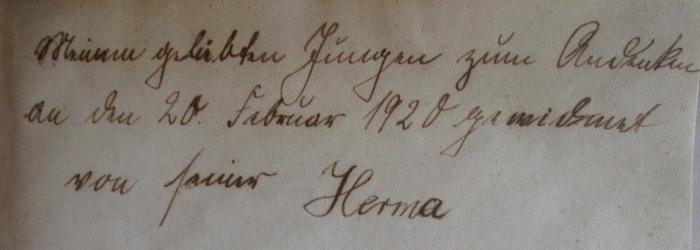 Meinem geliebten Jungen zum Andenken
an den 20. Februar 1920 gewidmet
von seiner Herma